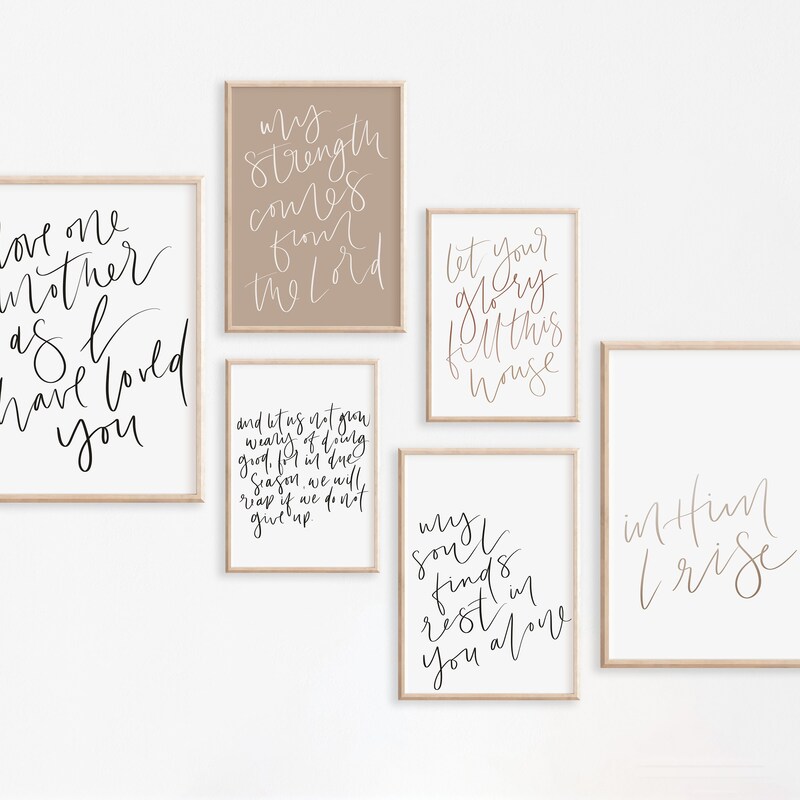 love one
another
as I
have loved
you
my
strength
comes
from
the Lord
and let us not grow
weary of doing
good, for in due
season, we will
reap if we do not
give up.
let your
glory
fill this
house
my
soul
finds
rest in
you alone
in Him
I rise